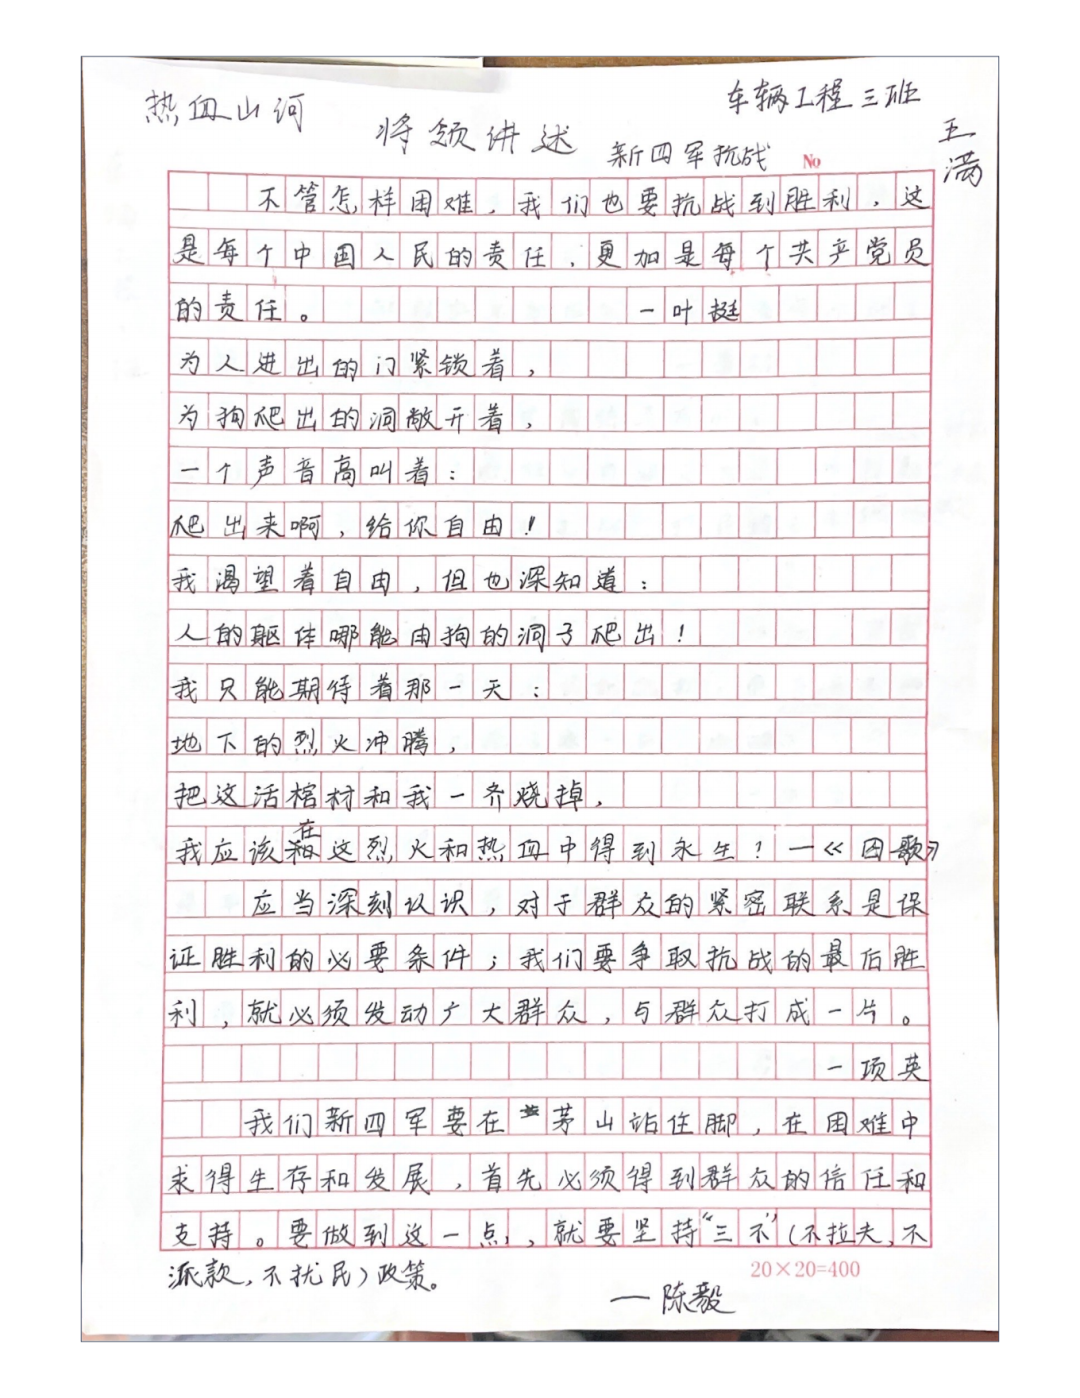 热血山河
车辆工程三班
王满
将领讲述
新四军抗战
No
不管怎样困难，我们也要抗战到胜利，这
是每个中国人民的责任，更加是每个共产党员
的责任。 一叶挺
为人进出的门紧锁着，
为狗爬出的洞敞开着，
一个声音高叫着：
爬出来啊，给你自由！
我渴望着自由，但也深知道：
人的躯体哪能由狗的洞子爬出！
我只能期待着那一天：
地下的烈火冲腾，
把这活棺材和我一齐烧掉，
我应该在这烈火和热血中得到永生！一《囚歌》
应当深刻认识，对于群众的紧密联系是保
证胜利的必要条件；我们要争取抗战的最后胜
利，就必须发动广大群众，与群众打成一片。
一项英
我们新四军要在茅山站住脚，在困难中
求得生存和发展，首先必须得到群众的信任和
支持。要做到这一点，就要坚持“三不”（不拉夫，不
派款，不扰民）政策。
20×20=400
—陈毅